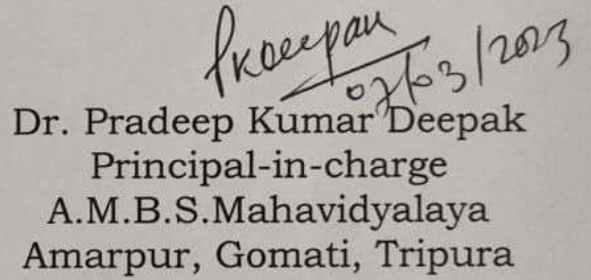 PKDeepak
07/03/2023
Dr. Pradeep Kumar Deepak
Principal-in-charge
A.M.B.S.Mahavidyalaya
Amarpur, Gomati, Tripura